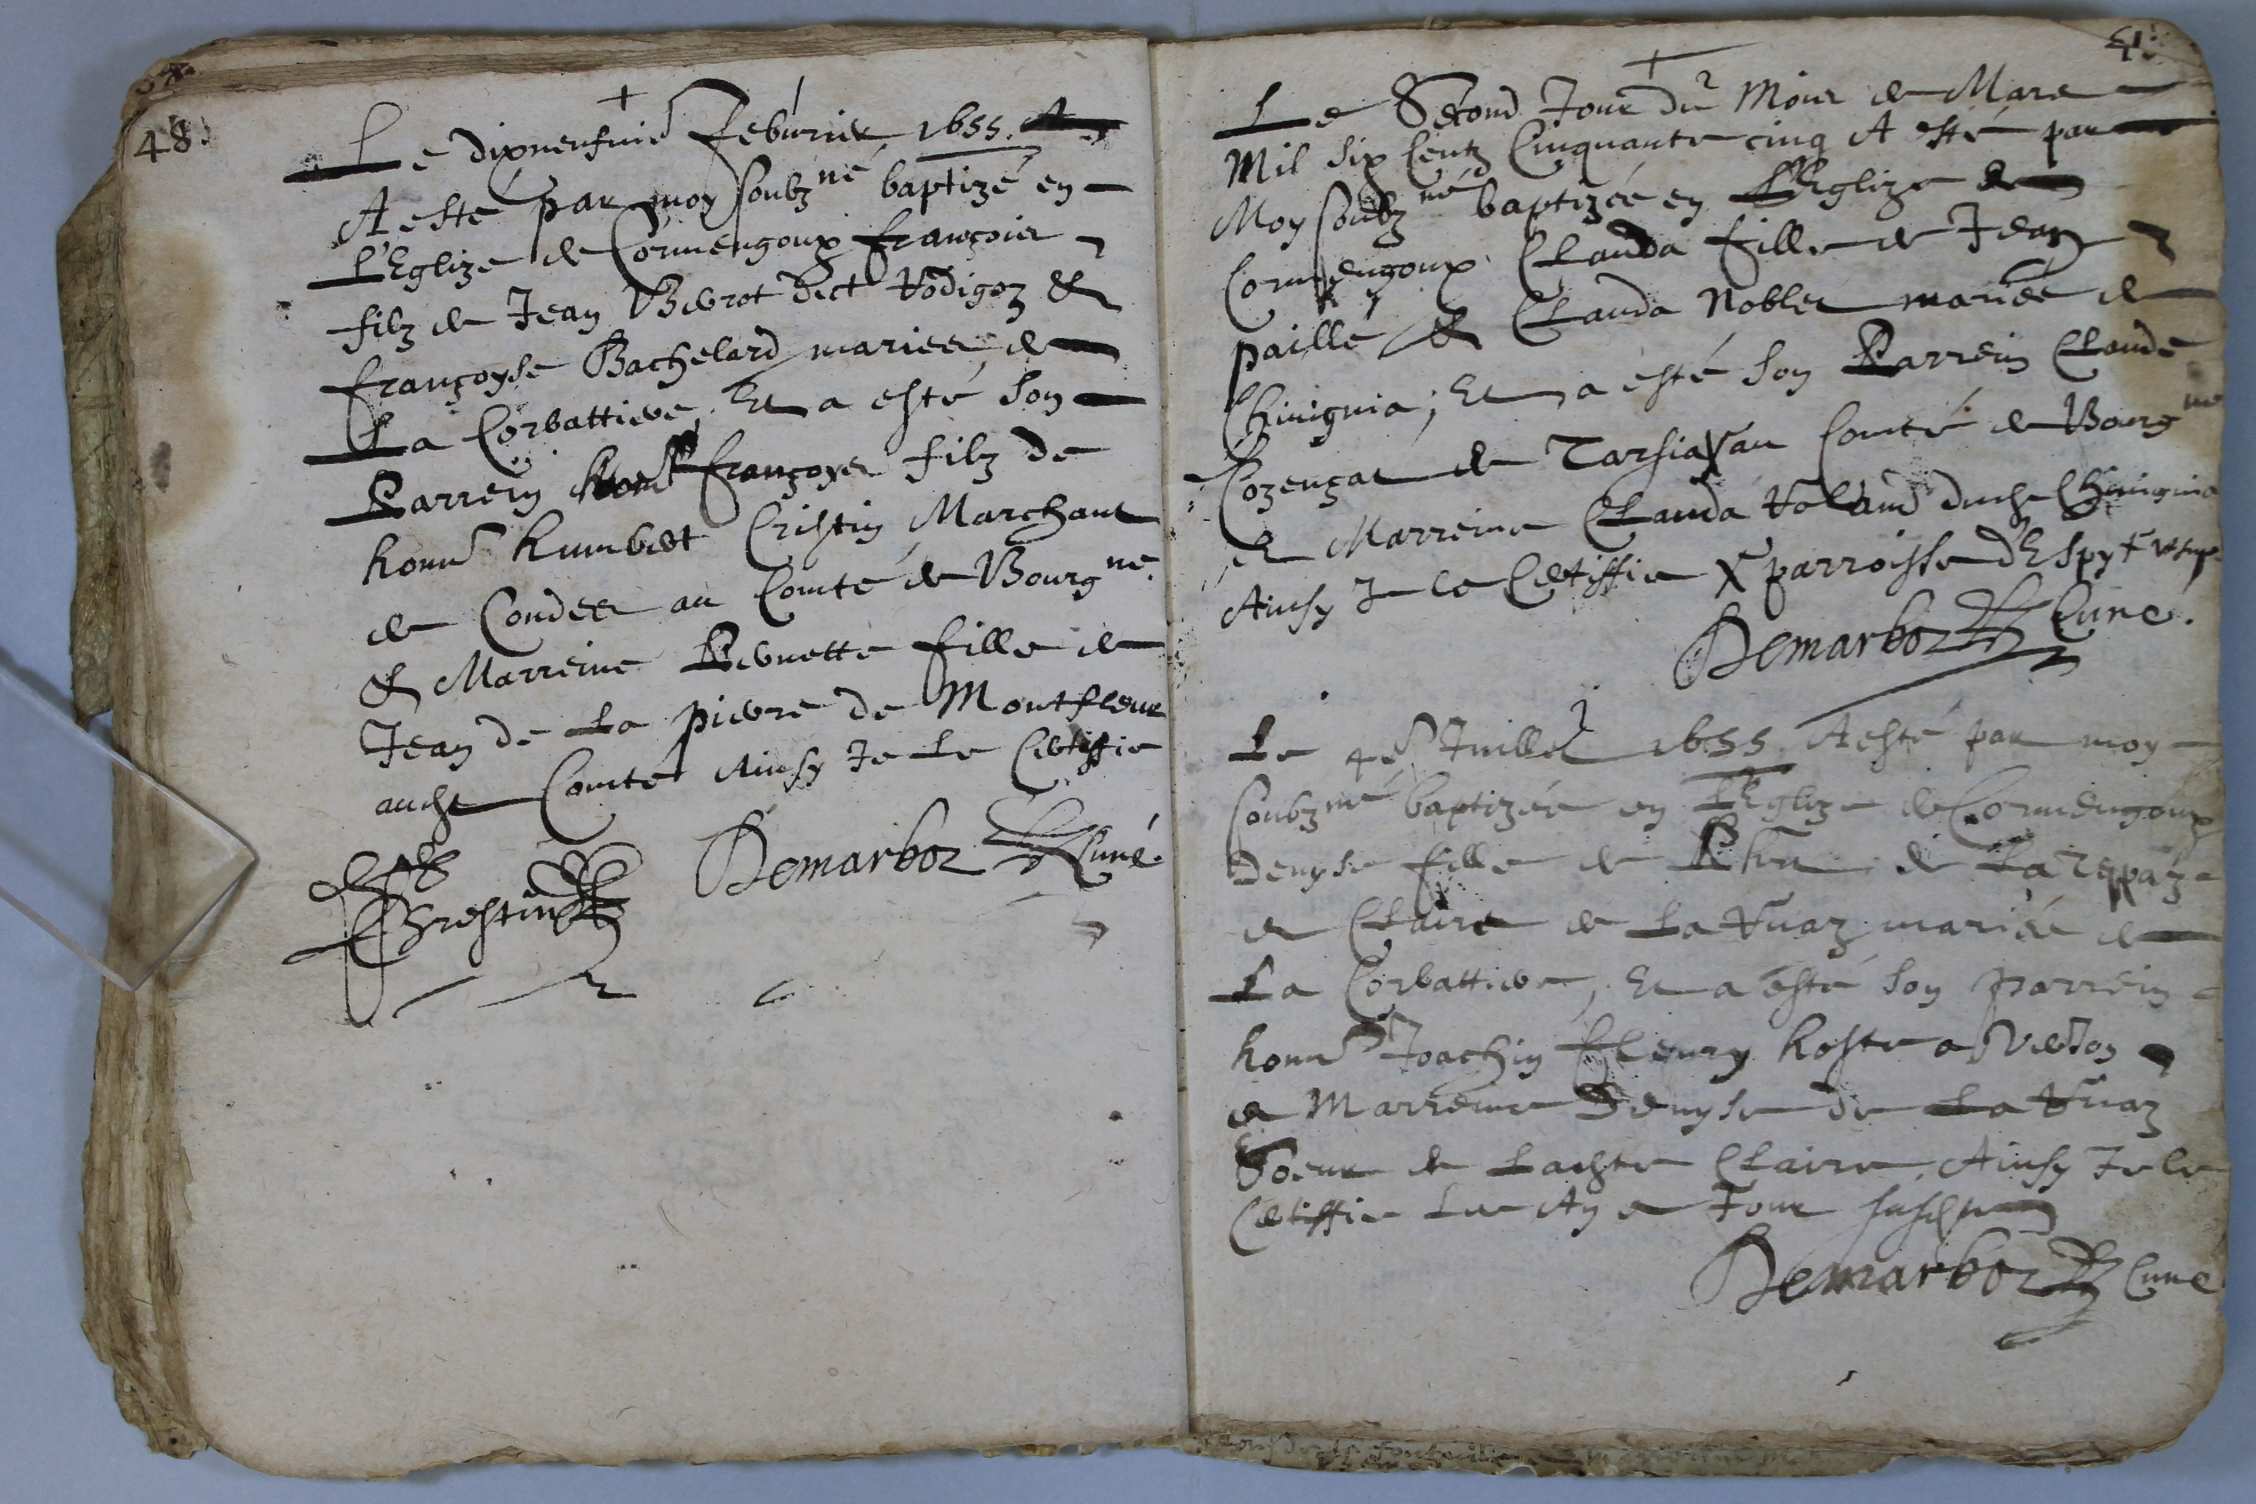 48.
Le dixneufuie Feburier 1655.
A esté par moy soubzné baptizé en
L'Eglize de Cormengoux françois
filz de Jean Berrot dict Vodigoz &
françoyse Bachelard mariee de
La Corbattiere, Et a esté son
Parrein françoys filz de
honn Humbert Cristin Marchant
de Condes au Comté de Bourgne.
& Marreine Pernette fille de
Jean de La pierre de Montfleur
audt Comté Ainsy Je Le Certiffie
Demarboz Curé.
Chrestin
Le Second Jour du Mois de Mars
Mil six Centz Cinquante cinq A esté par
Moy soubzné baptizée en L'Eglize de
Cormengoux Clauda fille de Jean
paille & Clauda Noblet mariée de
Chinignia; Et a esté son Parrein Claude
Cozençat de Tarsia au Comté de Bourgne
et Marreine Clauda Voland dudt Chinignia
Ainsy Je le Certiffie parroisse d'Espy
Demarboz Curé.
Le 4e Juillet 1655 A esté par moy
soubzné baptizée en L'Eglize de Cormengoux
Denyse fille de de La
et Claire de La Vuaz mariée de
La Corbattiere, Et a esté son parrein
honn Joachin Fleury hoste a Verjon
et Marreine Denyse de La Vuaz
Soeur de Ladte Claire, Ainsy Je le
Certiffie Les An et Jour susd
Demarboz Curé